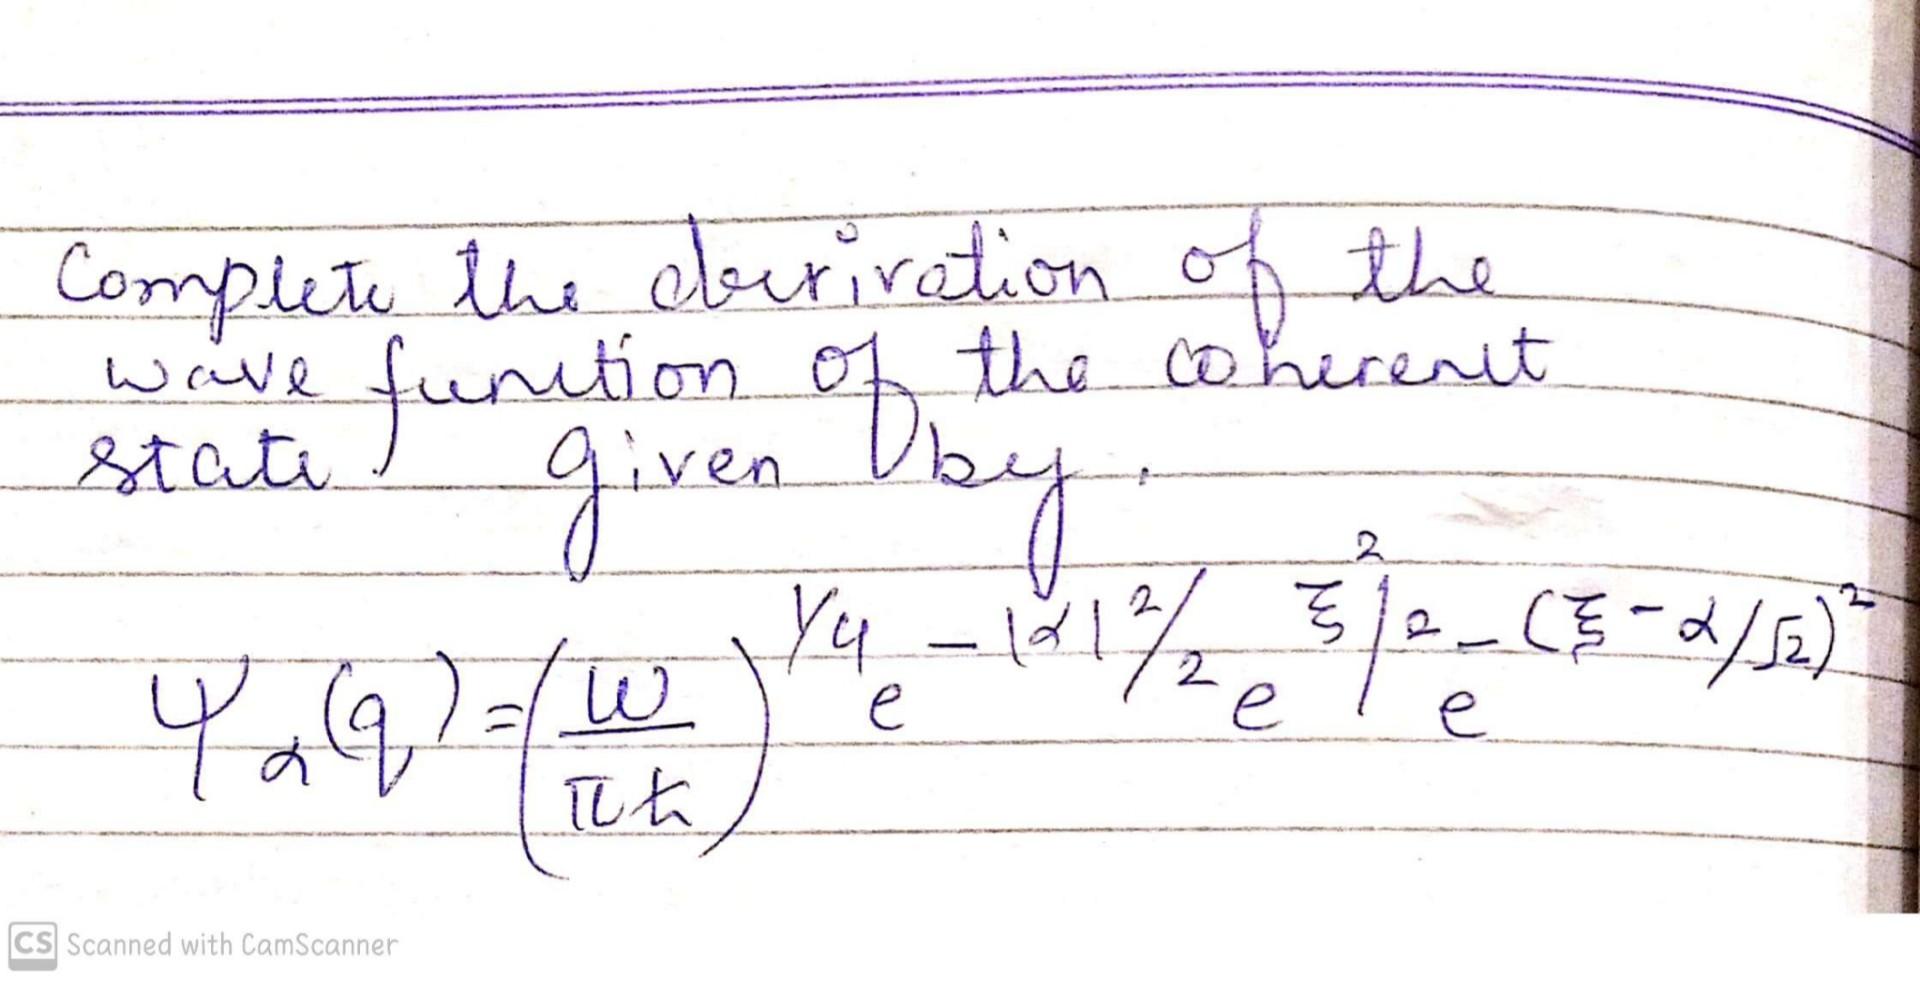 Complete the derivation of the
wave function of the coherent
state given by.
Ψα(q) = (ω/πħ)^1/4 e^-|α|²/2 e^ξ²/2 e^-(ξ-α/√2)²
CS Scanned with CamScanner